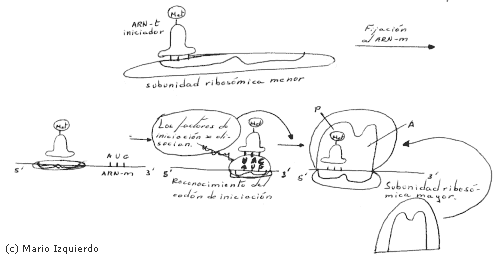 Met
ARN-t
iniciador
Fijación
al ARN-m
subunidad ribosómica menor
Met
5'
AUG
ARN-m
3'
Los factores de
iniciación se di-
socian.
Met
UAC
AUG
5'
3'
Reconocimiento del
codón de iniciación
P
A
Met
5'
3'
Subunidad ribosó-
mica mayor.
(c) Mario Izquierdo